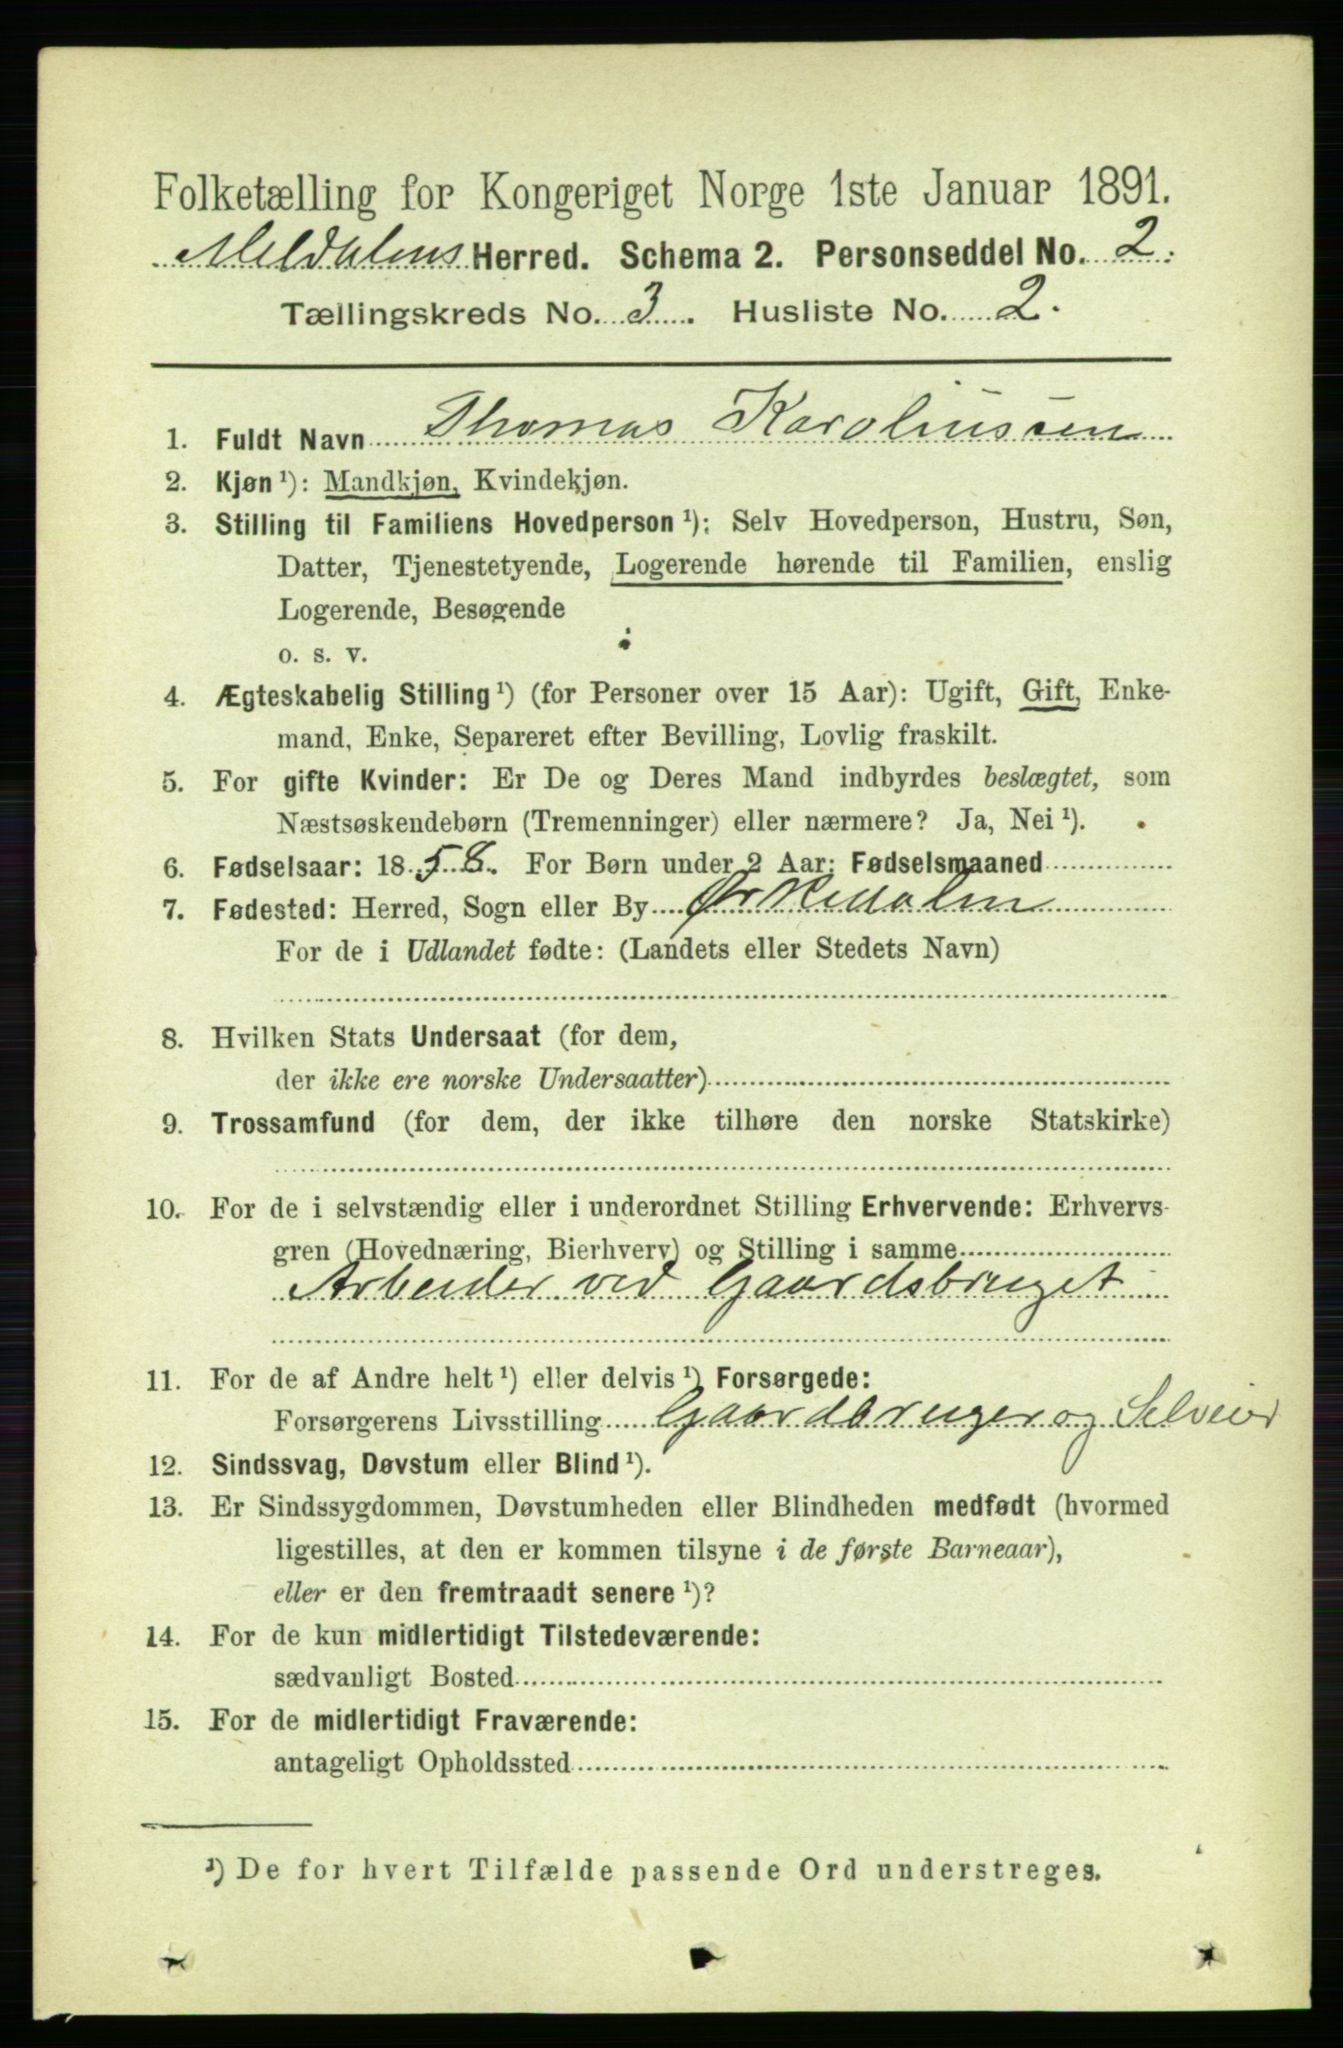 Folketælling for Kongeriget Norge 1ste Januar 1891.
Meldalens Herred. Schema 2. Personseddel No. 2.
Tællingskreds No. 3. Husliste No. 2.
1. Fuldt Navn Thomas Karoliussen
2. Kjøn ¹): Mandkjøn, Kvindekjøn.
3. Stilling til Familiens Hovedperson ¹): Selv Hovedperson, Hustru, Søn,
Datter, Tjenestetyende, Logerende hørende til Familien, enslig
Logerende, Besøgende
o. s. v.
4. Ægteskabelig Stilling ¹) (for Personer over 15 Aar): Ugift, Gift, Enke-
mand, Enke, Separeret efter Bevilling, Lovlig fraskilt.
5. For gifte Kvinder: Er De og Deres Mand indbyrdes beslægtet, som
Næstsøskendebørn (Tremenninger) eller nærmere? Ja, Nei ¹).
6. Fødselsaar: 1858. For Børn under 2 Aar: Fødselsmaaned
7. Fødested: Herred, Sogn eller By Ørkedalen
For de i Udlandet fødte: (Landets eller Stedets Navn)
8. Hvilken Stats Undersaat (for dem,
der ikke ere norske Undersaatter)
9. Trossamfund (for dem, der ikke tilhøre den norske Statskirke)
10. For de i selvstændig eller i underordnet Stilling Erhvervende: Erhvervs-
gren (Hovednæring, Bierhverv) og Stilling i samme
Arbeider ved Gaardsbruget
11. For de af Andre helt ¹) eller delvis ¹) Forsørgede:
Forsørgerens Livsstilling Gaardbruger og Selveier
12. Sindssvag, Døvstum eller Blind ¹).
13. Er Sindssygdommen, Døvstumheden eller Blindheden medfødt (hvormed
ligestilles, at den er kommen tilsyne i de første Barneaar),
eller er den fremtraadt senere ¹)?
14. For de kun midlertidigt Tilstedeværende:
sædvanligt Bosted
15. For de midlertidigt Fraværende:
antageligt Opholdssted
¹) De for hvert Tilfælde passende Ord understreges.